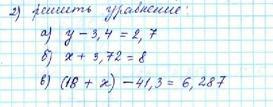 2) решить уравнение:
а) y - 3,4 = 2,7
б) x + 3,72 = 8
в) (18 + x) - 41,3 = 6,287